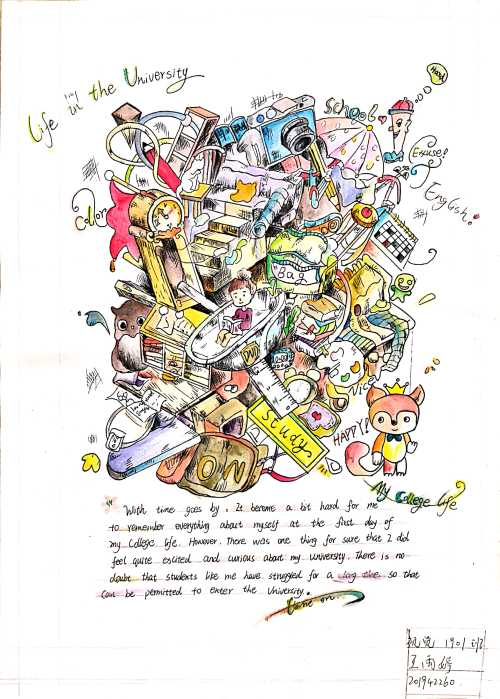 Life in the University
Hard
School
Excuse!
English.
Color
Bag
DVD
Nice
Study
HAPPY!
ON
My College Life
With time goes by, It become a bit hard for me
to remember everything about myself at the first day of
my College life. However, There was one thing for sure that I did
feel quite excited and curious about my University. There is no
doubt that students like me have struggled for a long time so that
can be permitted to enter the University.
Come on...
视觉 1901班
王雨婷
201942260